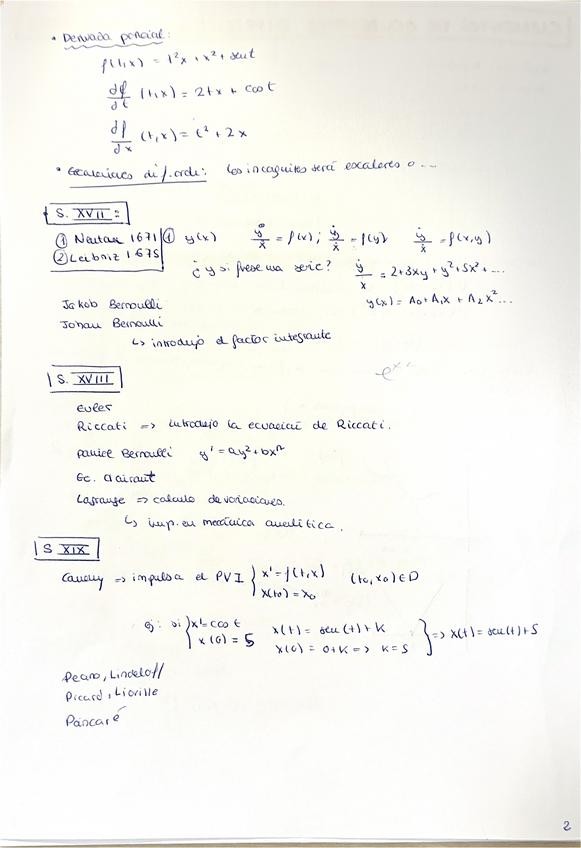 • Derivada parcial:
f(t,x) = t²x + x² + sent
df/dt (t,x) = 2tx + cost
df/dx (t,x) = t² + 2x
• Ecuaciones dif. orde: Los incognites será escaleres o ...
S. XVII:
① Newton 1671 ① y(x) ẏ/ẋ = f(x) ; ẏ/ẋ = f(y) ẏ/ẋ = f(x,y)
② Leibniz 1675 ¿y si fuese una serie? ẏ/ẋ = 2+3xy + y² + 5x² + ...
y(x) = A₀ + A₁x + A₂x² ...
Jakob Bernoulli
Johan Bernoulli
↳ introdujo el factor integrante
S. XVIII
Euler
Riccati => introdujo la ecuación de Riccati.
Daniel Bernoulli y' = ay² + bxⁿ
Ec. Clairaut
Lagrange => calculo de variaciones.
↳ imp. en mecánica analítica.
S XIX
Cauchy => impulsa el PVI { x' = f(t,x) (t₀,x₀) ∈ D
x(t₀) = x₀
ej: si { x' = cos t x(t) = sen(t) + K } => x(t) = sen(t) + 5
x(0) = 5 x(0) = 0+K => K = 5
Peano, Lindeloff
Picard, Lioville
Poincaré
2